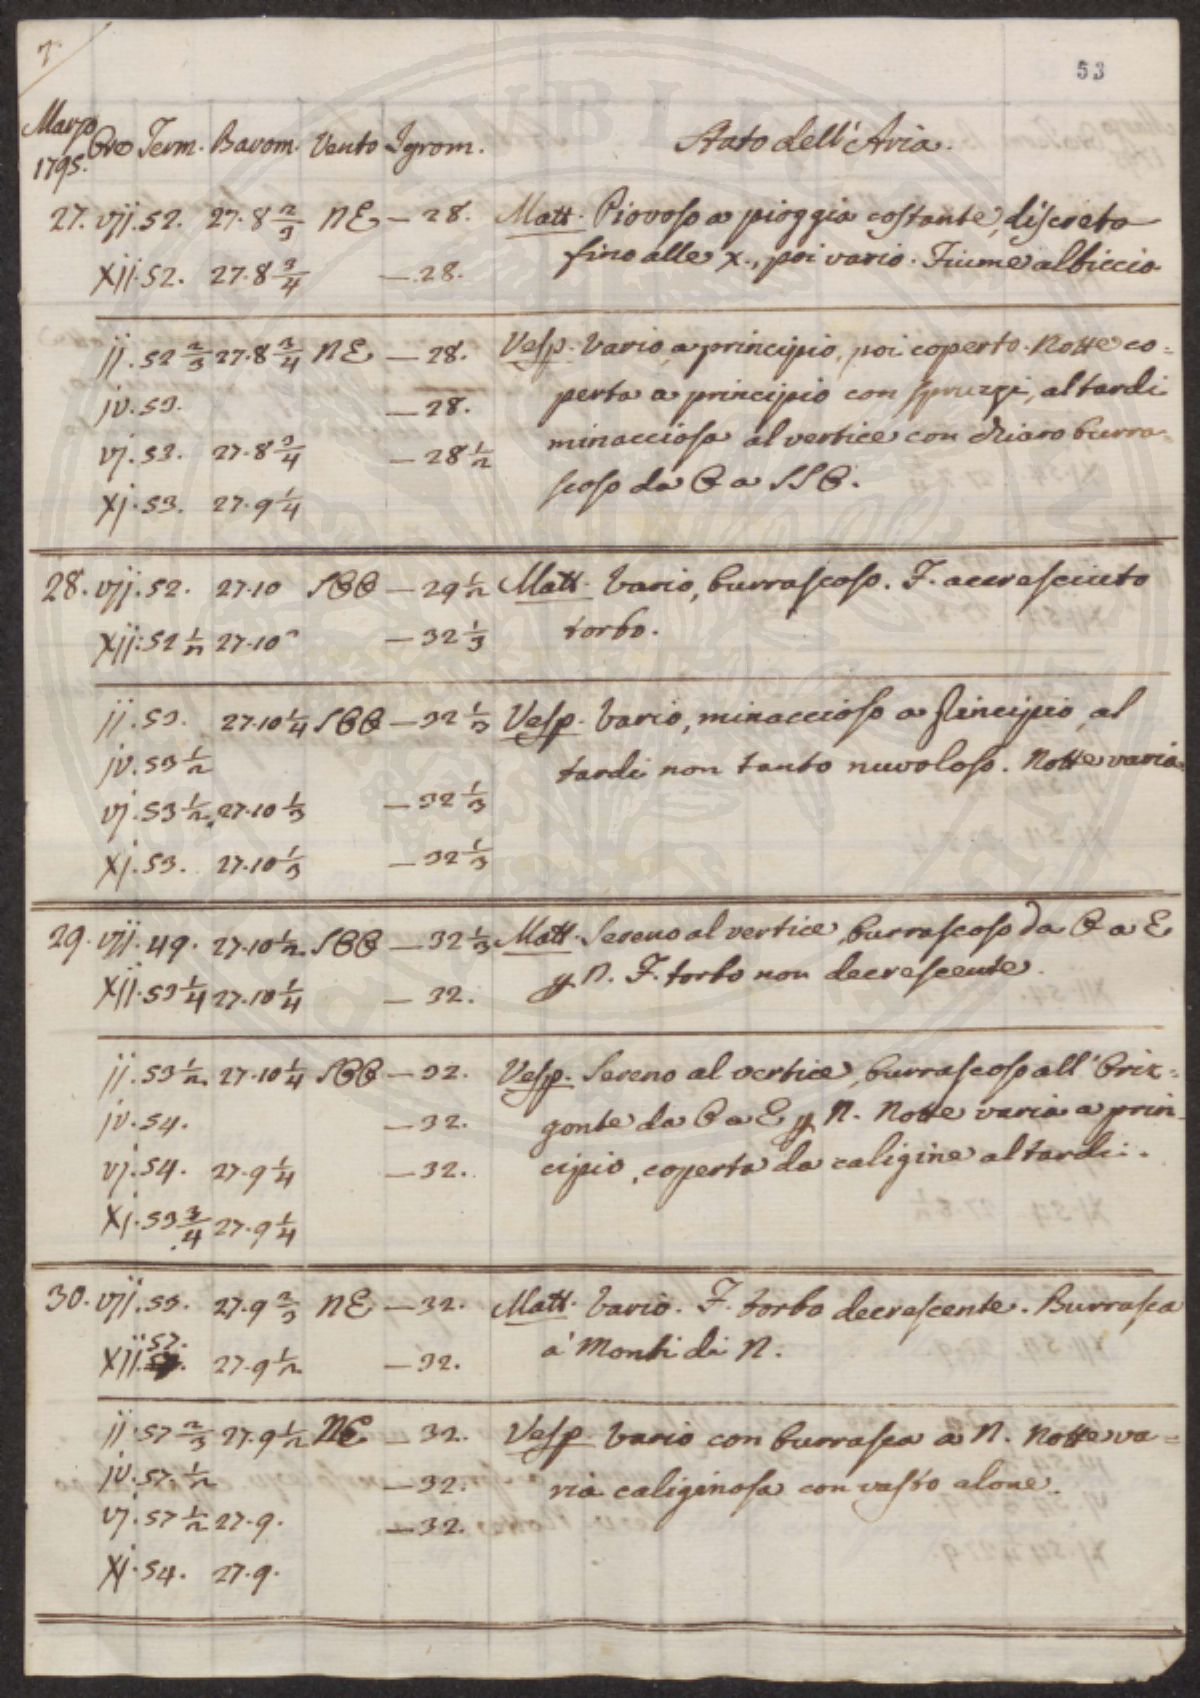 7
53
Marzo 1795. Ore Term. Barom. Vento Igrom. Stato dell'Aria.
27. vij. 52. 27. 8 2/3 NE — 28. Matt. Piovoso a pioggia costante, discreta
fino alle x., poi vario. Fiume albiccio
xij. 52. 27. 8 3/4 — 28.
ij. 52 2/3 27. 8 3/4 NE — 28. Vesp. Vario a principio, poi coperto. Notte co=
perta a principio con spruzzi, al tardi
iv. 53. — 28.
minacciosa al vertice con chiaro burra=
vj. 53. 27. 8 3/4 — 28 1/2
scoso da O a SSO.
xj. 53. 27. 9 1/4
28. vij. 52. 27. 10 SOO — 29 1/2 Matt. Vario, burrascoso. F. accresciuto
torbo.
xij. 52 1/2 27. 10 — 32 1/3
ij. 53. 27. 10 1/4 SOO — 32 1/3 Vesp. Vario, minaccioso a principio, al
tardi non tanto nuvoloso. Notte varia.
iv. 53 1/2
vj. 53 1/2 27. 10 1/3 — 32 1/3
xj. 53. 27. 10 1/3 — 32 1/3
29. vij. 49. 27. 10 1/2 SOO — 32 1/3 Matt. Sereno al vertice, burrascoso da O a E
p N. F. torbo non decrescente.
xij. 53 1/4 27. 10 1/4 — 32.
ij. 53 1/2 27. 10 1/4 SOO — 32. Vesp. Sereno al vertice, burrascoso all'Oriz=
gonte da O a E p N. Notte varia a prin=
iv. 54. — 32.
cipio, coperta da caligine al tardi.
vj. 54. 27. 9 1/4 — 32.
xj. 53 3/4 27. 9 1/4
30. vij. 53. 27. 9 2/3 NE — 32. Matt. Vario. F. torbo decrescente. Burrasca
a' Monti di N.
xij. 57. 27. 9 1/2 — 32.
ij. 57 2/3 27. 9 1/2 NE — 32. Vesp. Vario con burrasca a N. Notte va=
ria caliginosa con vasto alone.
iv. 57. 1/2 — 32.
vj. 57 1/2 27. 9. — 32.
xj. 54. 27. 9.